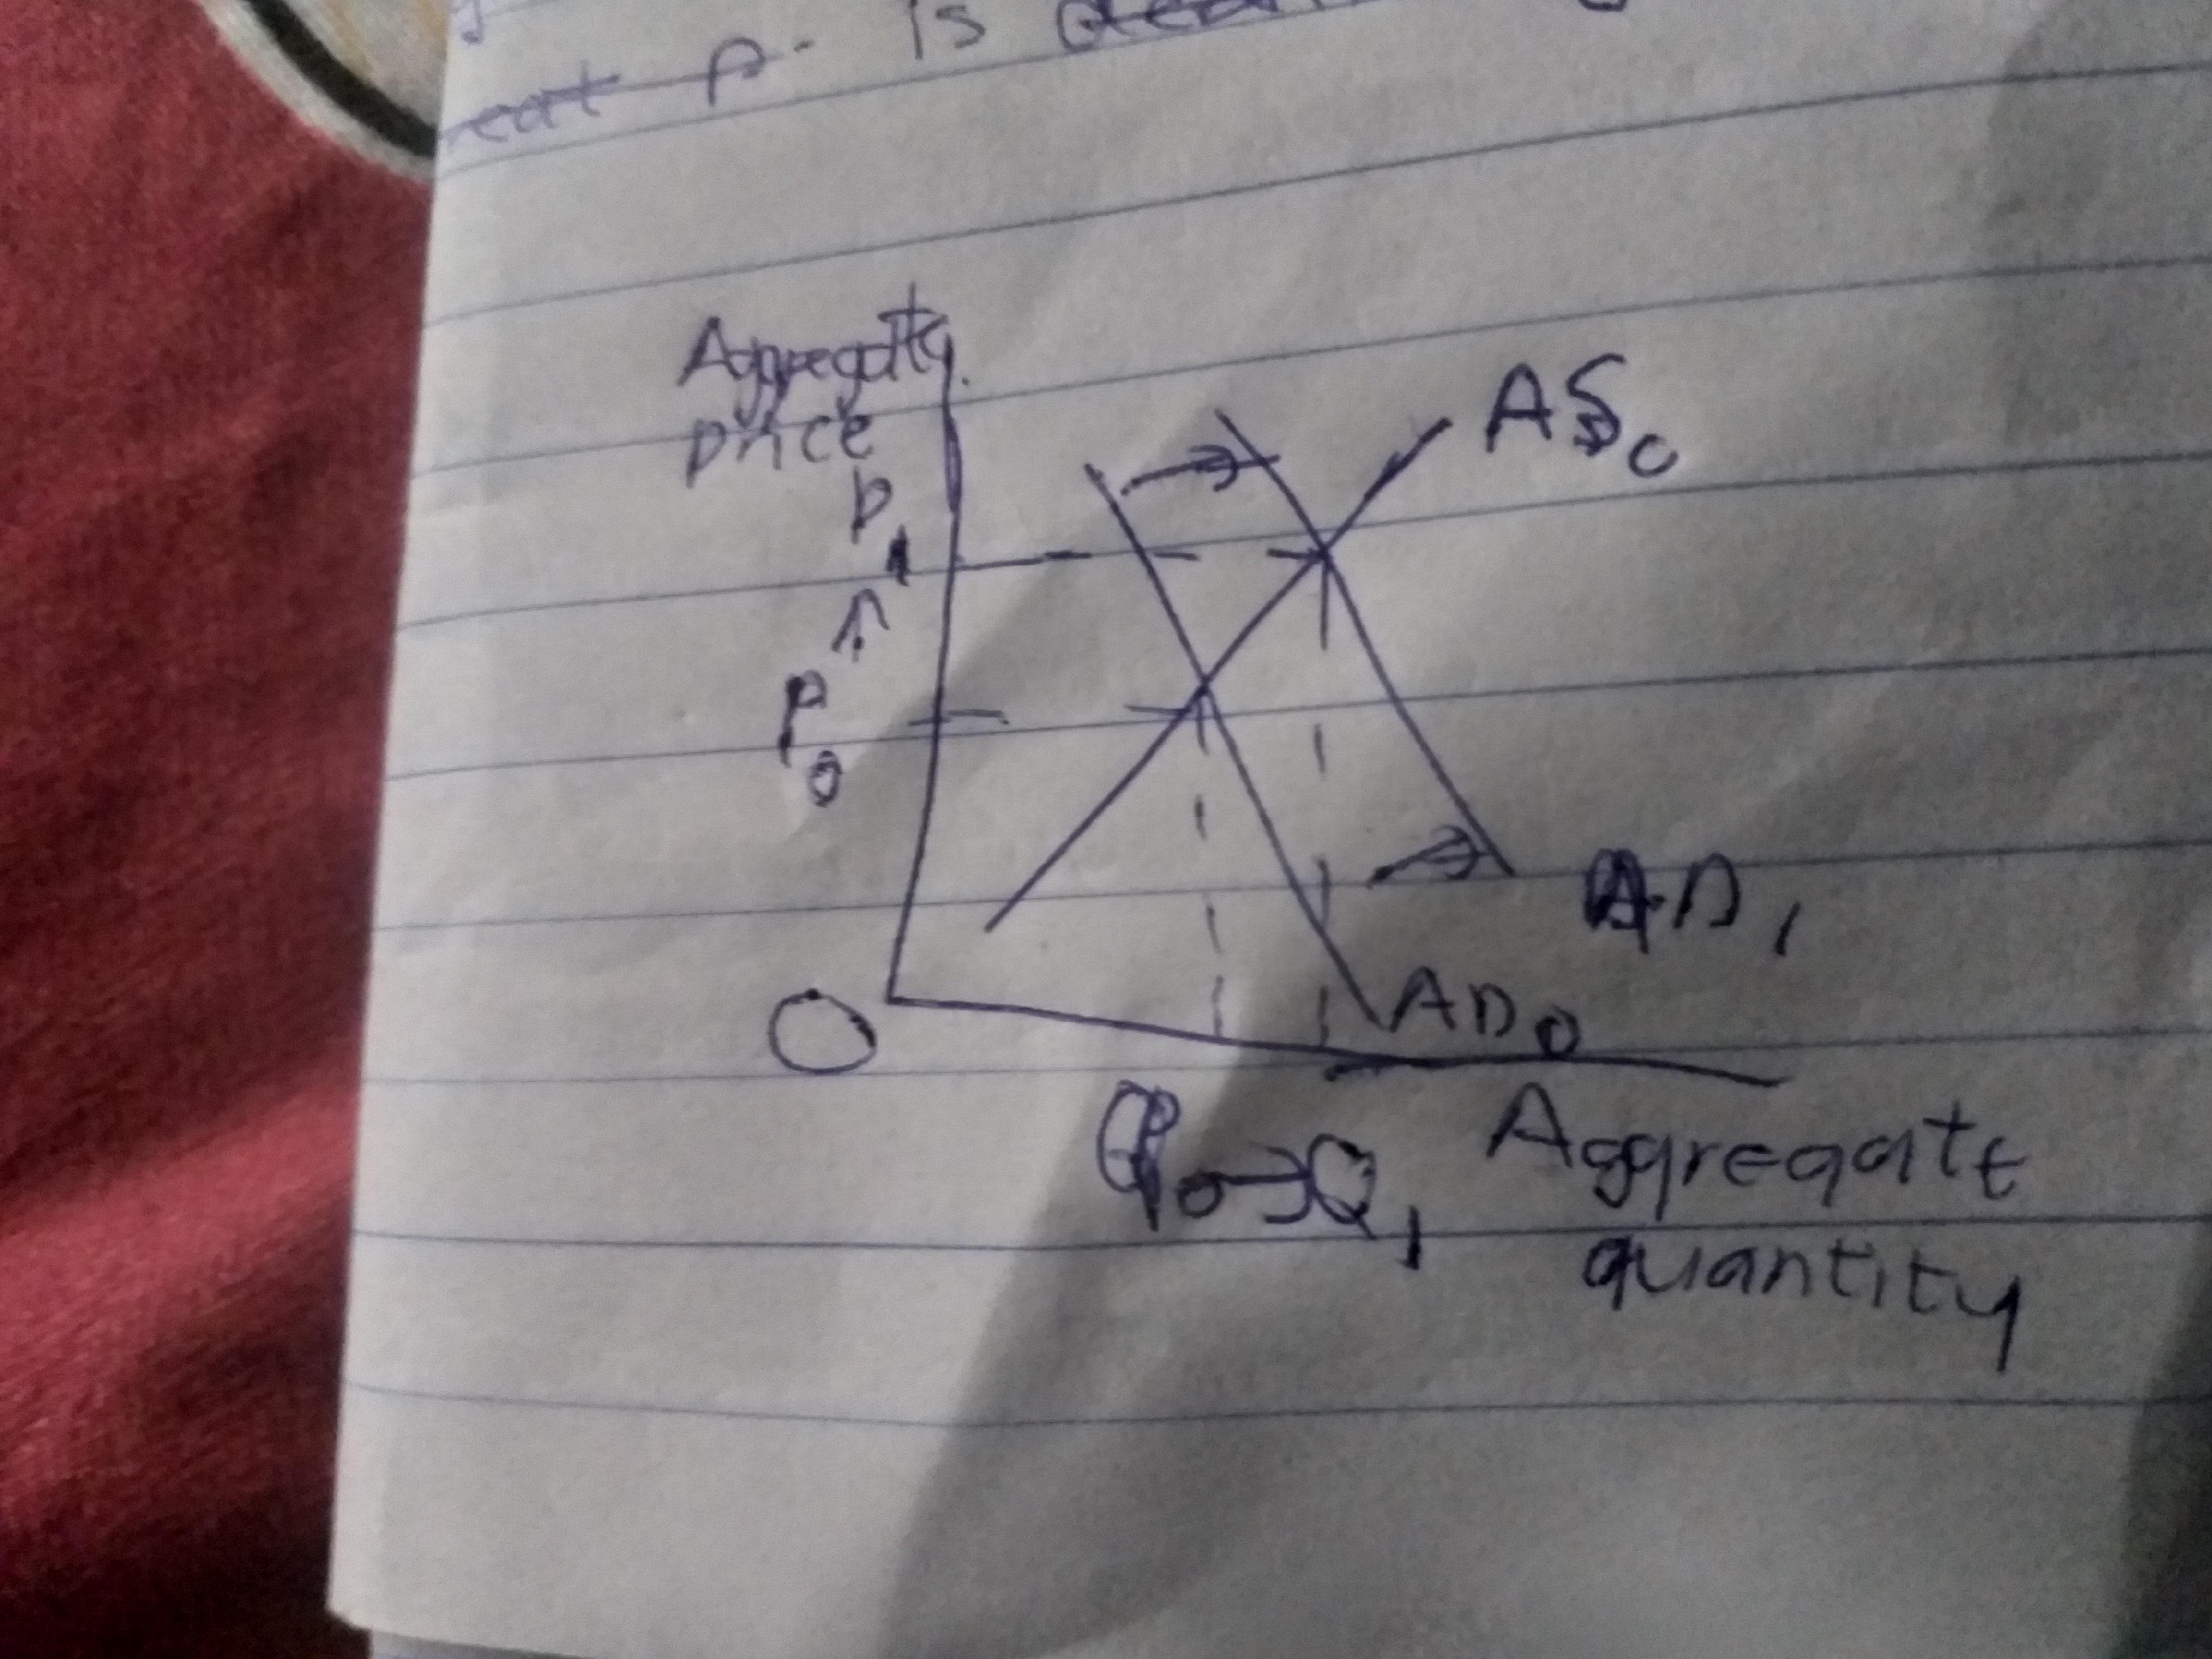 P. is
Aggregate
price
P1
↑
P0
AS0
AD1
AD0
O
Q0→Q1
Aggregate
quantity